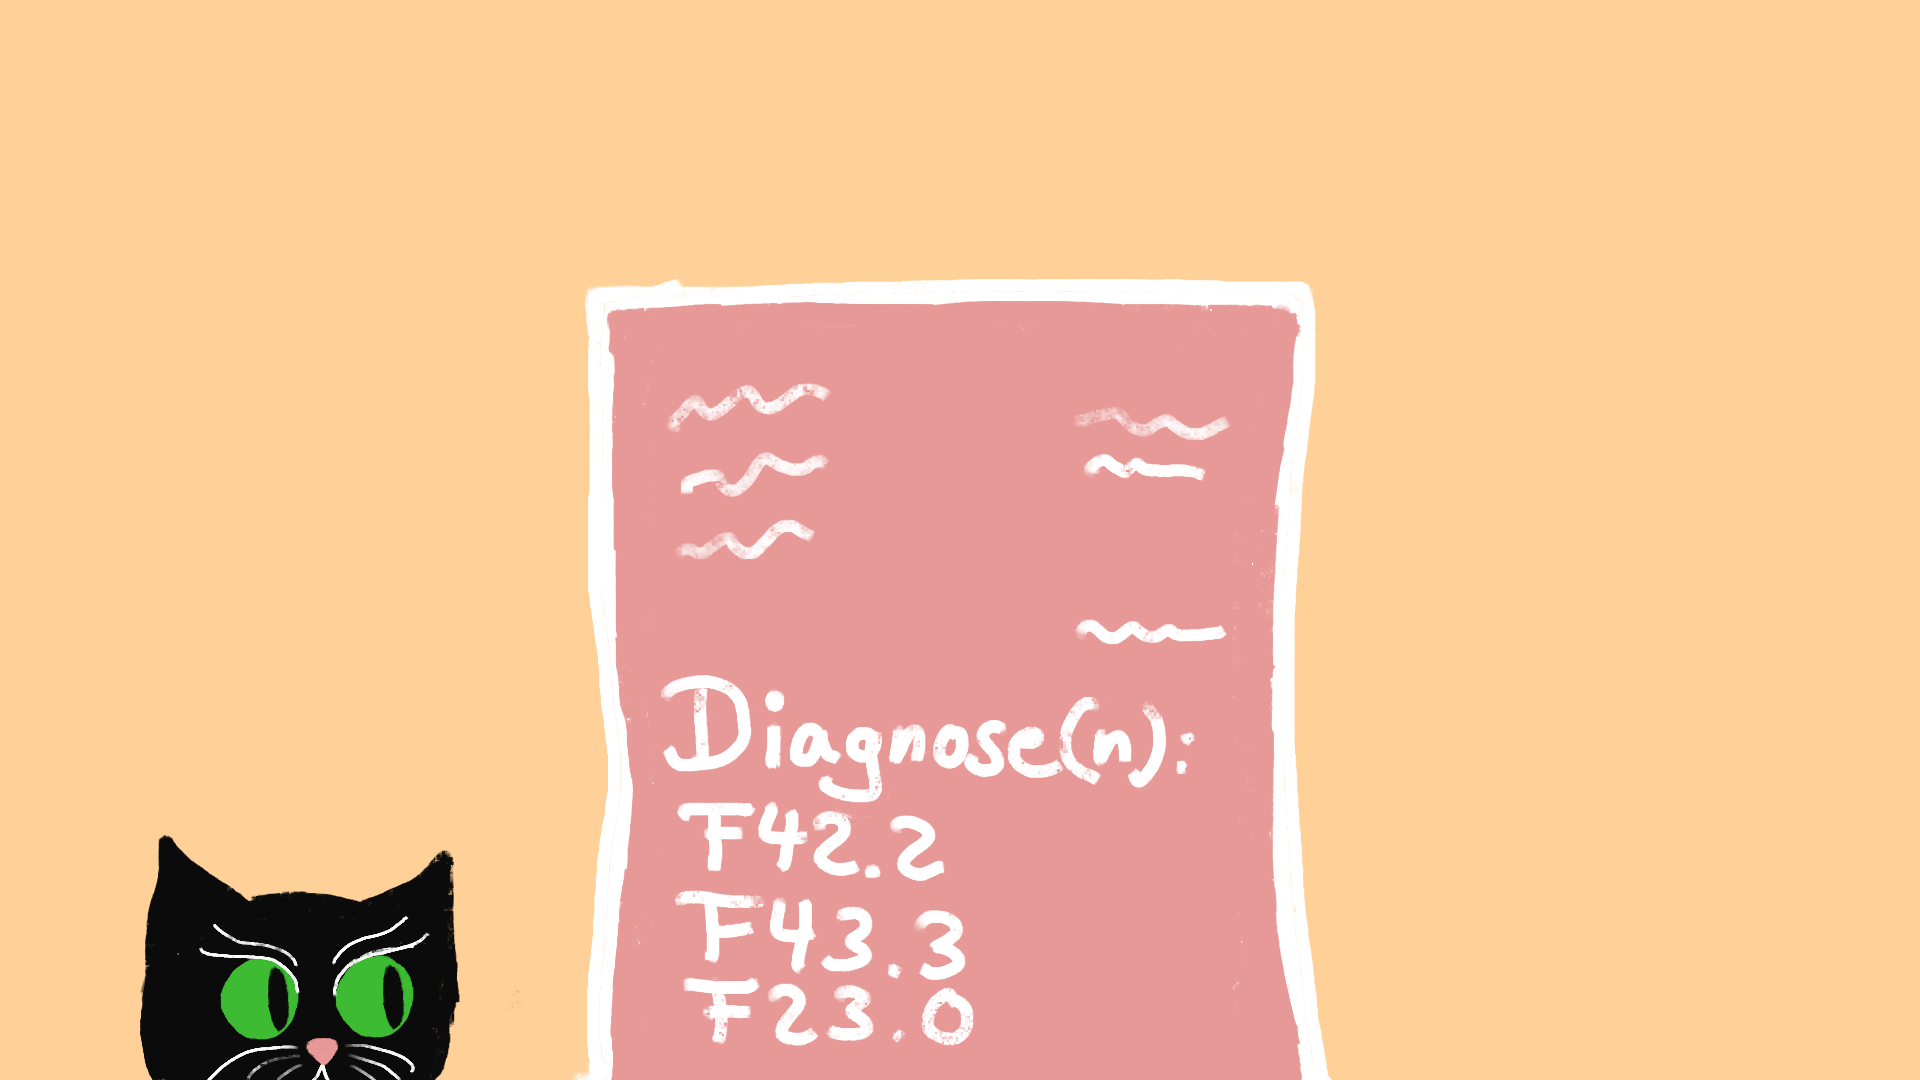 Diagnose(n):
F42.2
F43.3
F23.0